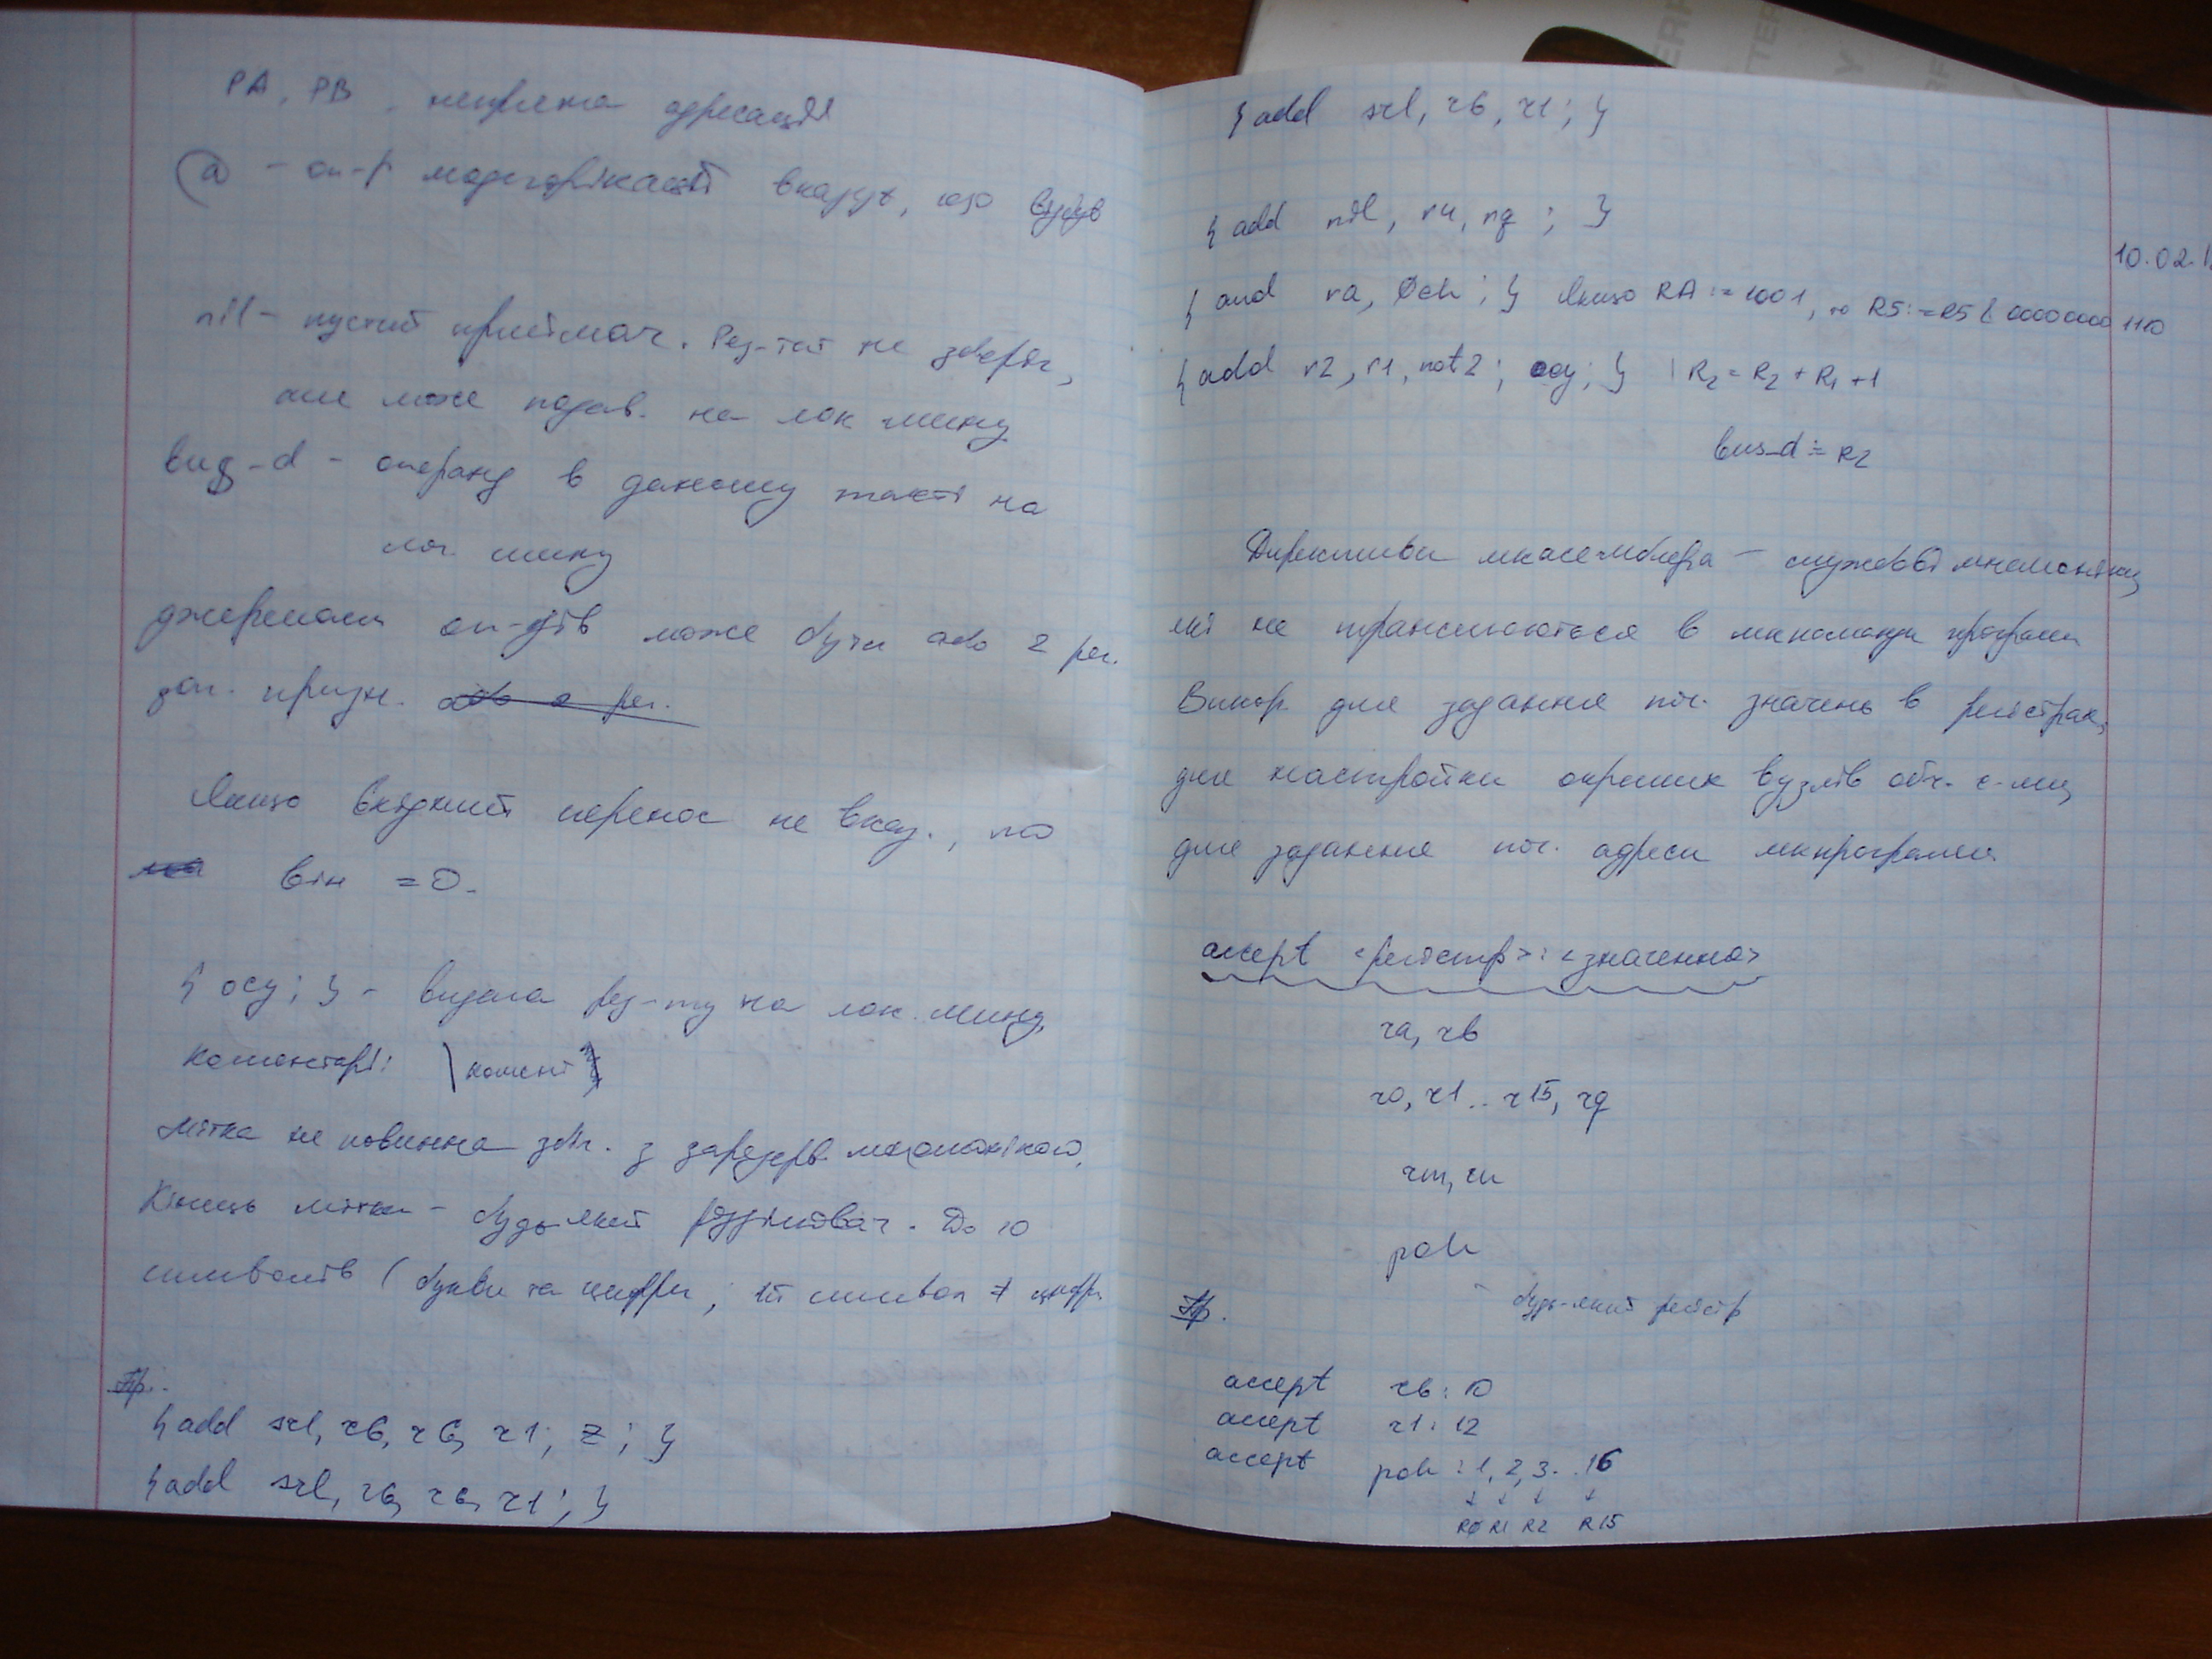 PA, PB, непряма адресація
@ - оп-р модифікації вказує, що
nil - пустий приймач. Рез-тат не зберіг,
але може подав. на лок шину
bus_d - операнд в даному такті на
лок. шину
джерелом оп-дів може бути або 2 рег.
заг. призн.
Якщо вхідний перенос не вказ., то
він = 0.
{ oey; } - видача рез-ту на лок. шину
Коментарі: \ комент
Мітка не повинна збіг. з зарезерв. мнемонікою.
Кінець мітки - будь-який розділювач. До 10
символів ( букви та цифри; 1й символ ≠ цифр.
Пр.
{ add srl, r6, r6, r1; z; }
{ add srl, r6, r6, r1; }
{ add srl, r6, r1; }
{ add nil, r4, rq ; }
10.02.1
{ and ra, 0eh ; } Якщо RA := 1001, то R5 := R5 & 00000000 1110
{ add r2, r1, not z ; oey; } | R2 = R2 + R1 + 1
bus_d := R2
Директиви мкасемблера - службові мнемоніки,
які не транслюються в мкоманди програми
Викор. для задання поч. значень в регістрах,
для настройки окремих вузлів обч. с-ми,
для задання поч. адреси мкпрограми
accept <регістр> : <значення>
ra, rb
r0, r1 .. r15, rq
rm, rn
poh
Пр. - будь-який регістр
accept r6 : 10
accept r1 : 12
accept poh : 1, 2, 3 .. 16
R0 R1 R2 R15